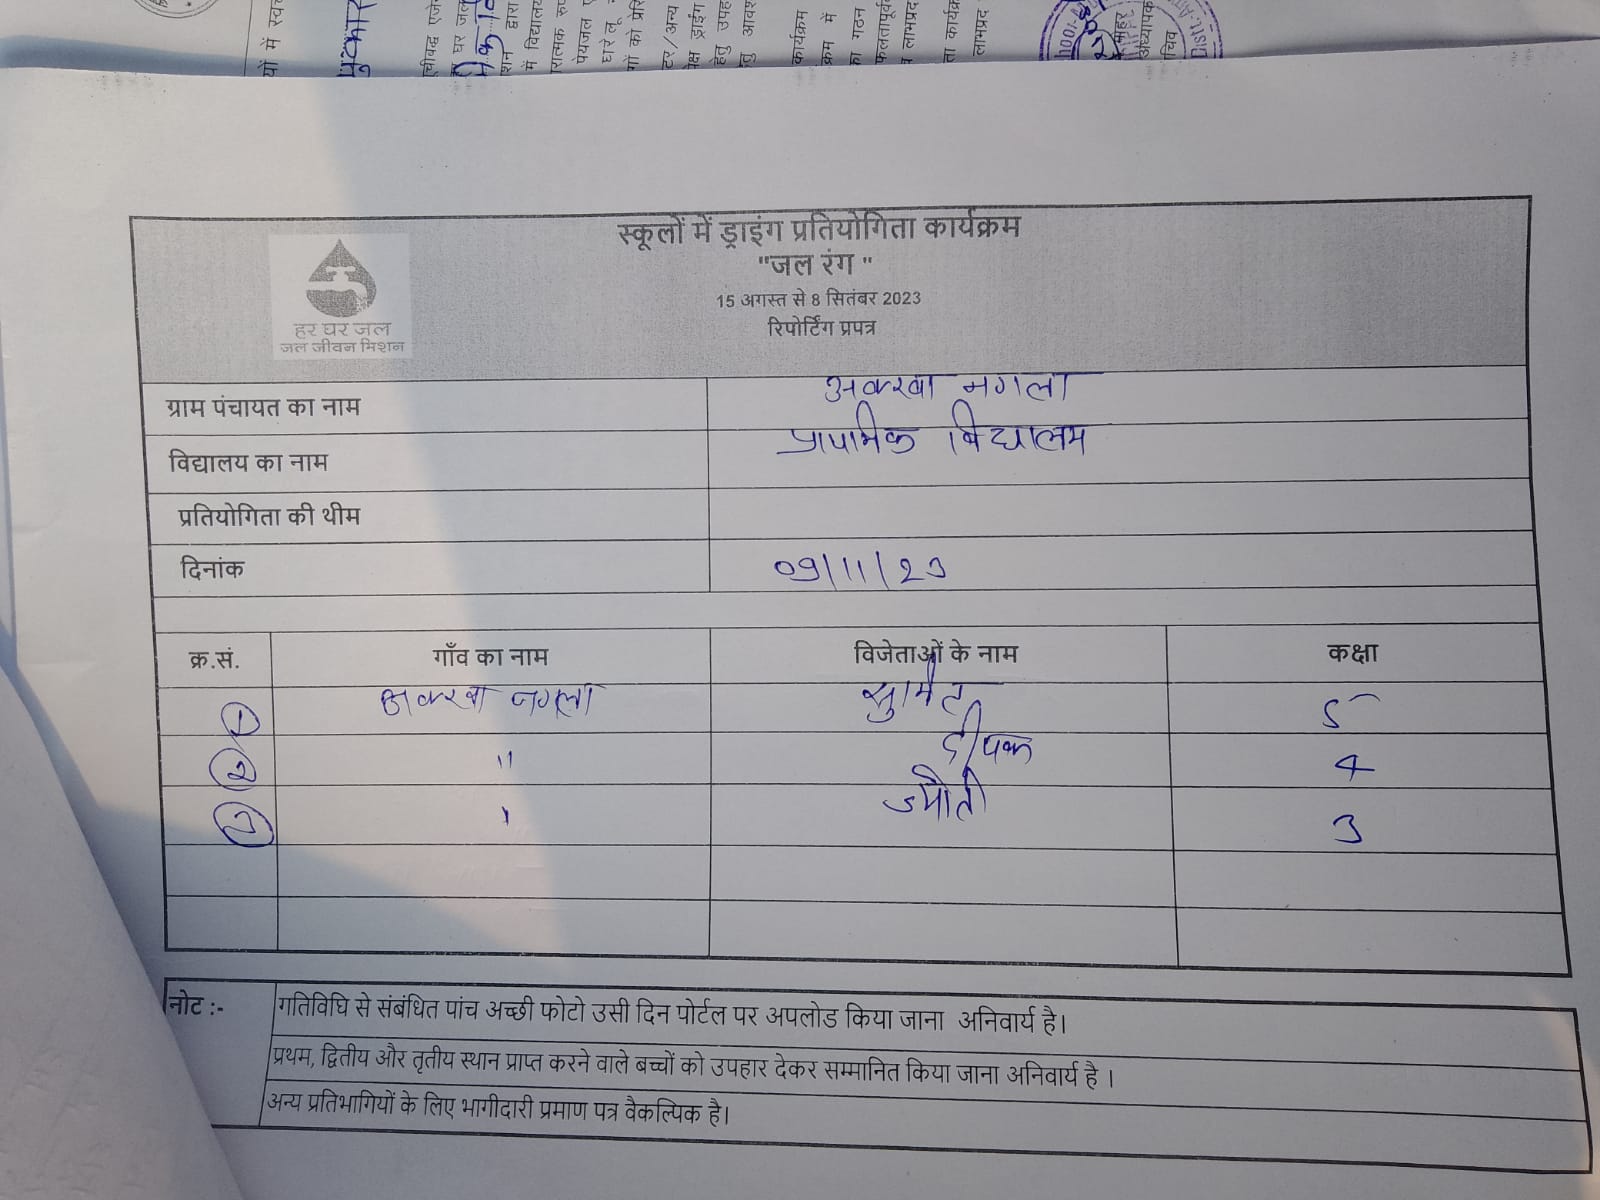 स्कूलों में ड्राइंग प्रतियोगिता कार्यक्रम
"जल रंग "
15 अगस्त से 8 सितंबर 2023
रिपोर्टिंग प्रपत्र
हर घर जल
जल जीवन मिशन
ग्राम पंचायत का नाम अक्खा नगला
विद्यालय का नाम प्राथमिक विद्यालय
प्रतियोगिता की थीम
दिनांक 09/11/23
क्र.सं. गाँव का नाम विजेताओं के नाम कक्षा
1 अक्खा नगला सुमित 5
2 " दीपक 4
3 ज्योती 3
नोट :- गतिविधि से संबंधित पांच अच्छी फोटो उसी दिन पोर्टल पर अपलोड किया जाना अनिवार्य है।
प्रथम, द्वितीय और तृतीय स्थान प्राप्त करने वाले बच्चों को उपहार देकर सम्मानित किया जाना अनिवार्य है ।
अन्य प्रतिभागियों के लिए भागीदारी प्रमाण पत्र वैकल्पिक है।